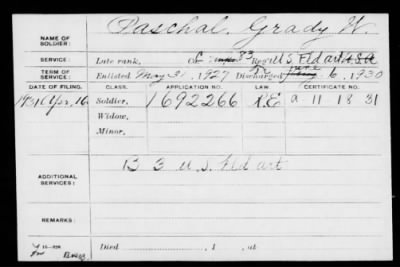 NAME OF SOLDIER: Paschal, Grady W.
SERVICE: Late rank, C 83 Reg't U.S. Fld art U.S.A
TERM OF SERVICE: Enlisted May 31, 1927 Discharged June 6, 1930
DATE OF FILING. CLASS. APPLICATION NO. LAW. CERTIFICATE NO.
1931 Apr. 16 Soldier, 1692266 a 11 18 31
Widow,
Minor,
ADDITIONAL SERVICES: B 3 U.S. Fld art
REMARKS:
Died , 1 , at